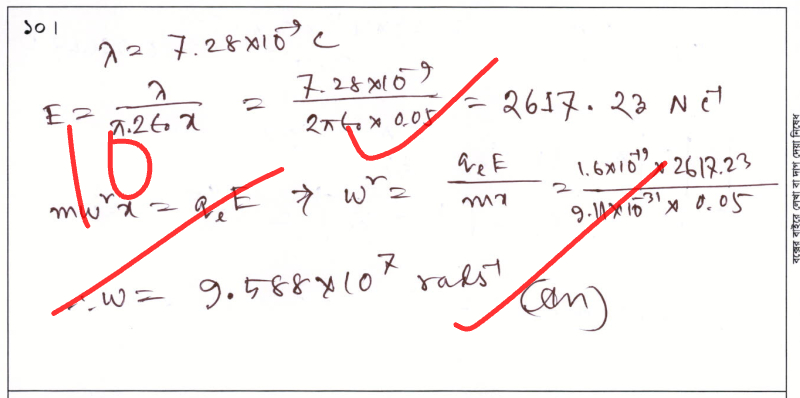 ১০।
λ = 7.28×10⁻⁹ C
E = λ/(π.2ε₀ x) = 7.28×10⁻⁹/(2πε₀ × 0.05) = 2617.23 N C⁻¹
10
mω²x = qₑE ⇒ ω² = qₑE/mx = 1.6×10⁻¹⁹ × 2617.23/(9.11×10⁻³¹ × 0.05)
∴ ω = 9.588×10⁷ rads⁻¹ (Ans)
বক্সের বাইরে লেখা বা দাগ দেয়া নিষেধ